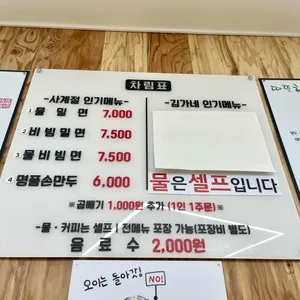 차림표
-사계절 인기메뉴-
1 물 밀 면 7.000
2 비 빔 밀 면 7.500
3 물 비 빔 면 7.500
4 명품손만두 6.000
-김가네 인기메뉴-
물은 셀프입니다
※곱빼기 1.000원 추가 (1인 1주문)※
-물·커피는 셀프 | 전메뉴 포장 가능(포장비 별도)
음 료 수 2,000원
오이는 돌아갓!
NO!